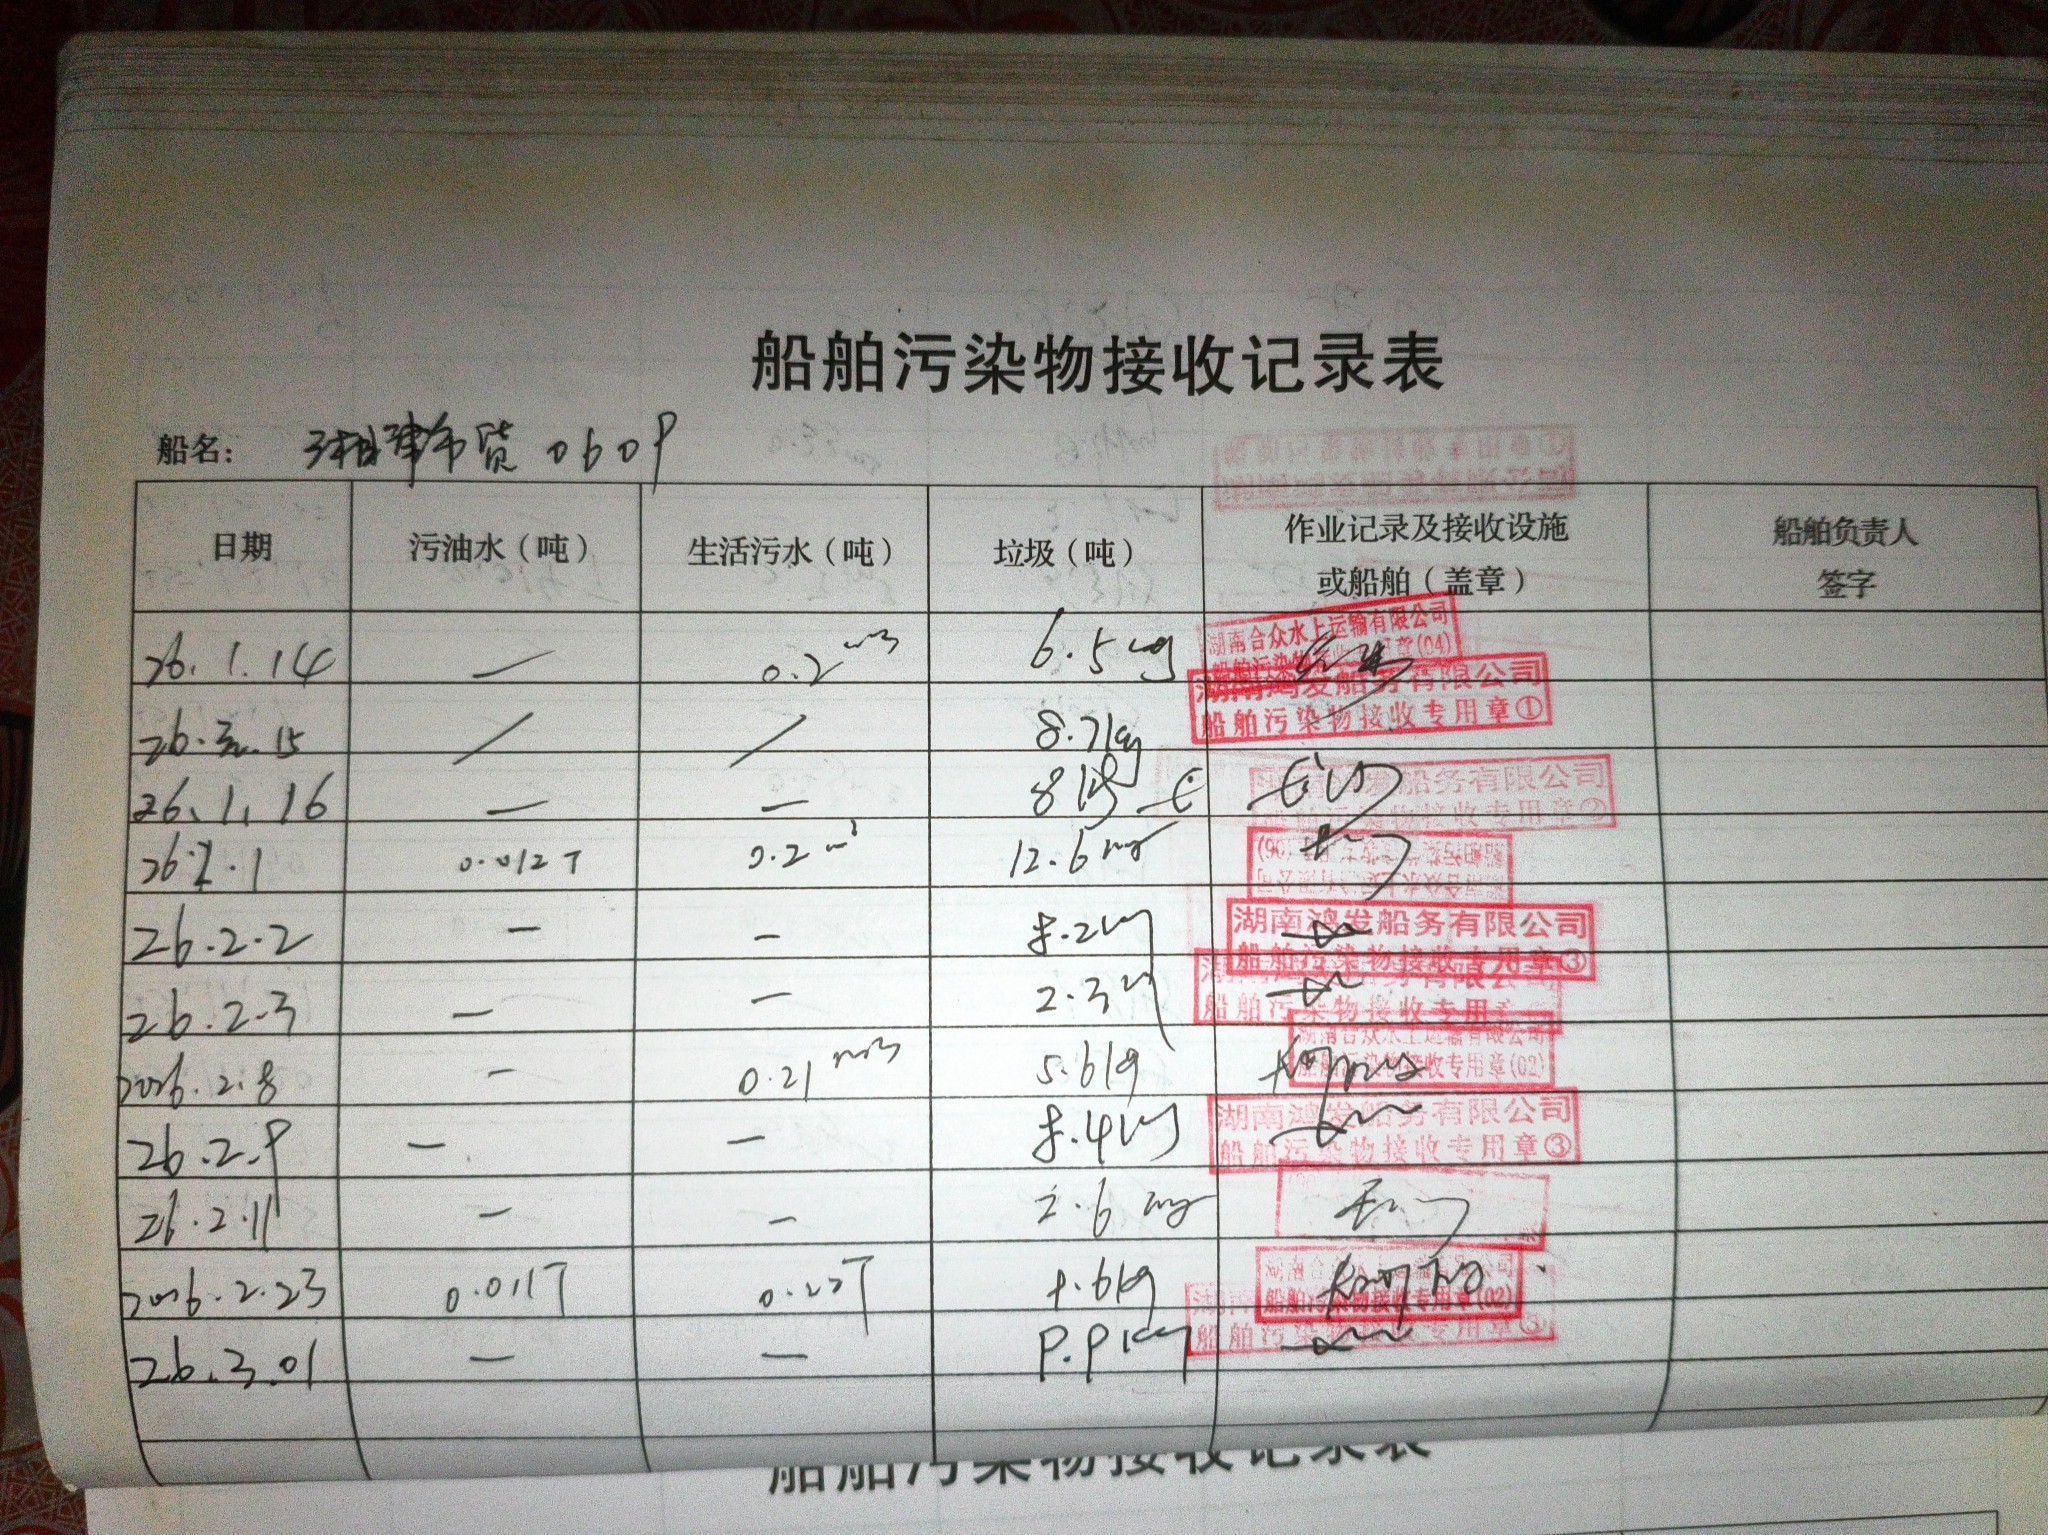 船舶污染物接收记录表
船名： 湘津市货0609
日期 污油水（吨） 生活污水（吨） 垃圾（吨） 作业记录及接收设施 或船舶（盖章） 船舶负责人 签字
26.1.14 — 0.2 m3 6.5kg 湖南合众水上运输有限公司 船舶污染物接收专用章(04)
26. 15 / / 8.7kg 湖南鸿发船务有限公司 船舶污染物接收专用章①
26.1.16 — — 8kg 湖南鸿发船务有限公司 船舶污染物接收专用章②
26.2.1 0.012T 0.2m3 12.6kg
26.2.2 — — 8.2kg 湖南鸿发船务有限公司 船舶污染物接收专用章③
26.2.3 — — 2.3kg 船舶污染物接收专用章
2026.2.8 — 0.21m3 5.6kg 湖南合众水上运输有限公司 船舶污染物接收专用章(02)
26.2.9 — — 8.4kg 湖南鸿发船务有限公司 船舶污染物接收专用章③
26.2.11 — — 2.6kg
2026.2.23 0.011T 0.22T 6kg 湖南合众水上运输有限公司 船舶污染物接收专用章(02)
26.3.01 — — 9.9kg 船舶污染物接收专用章③
船舶污染物接收记录表